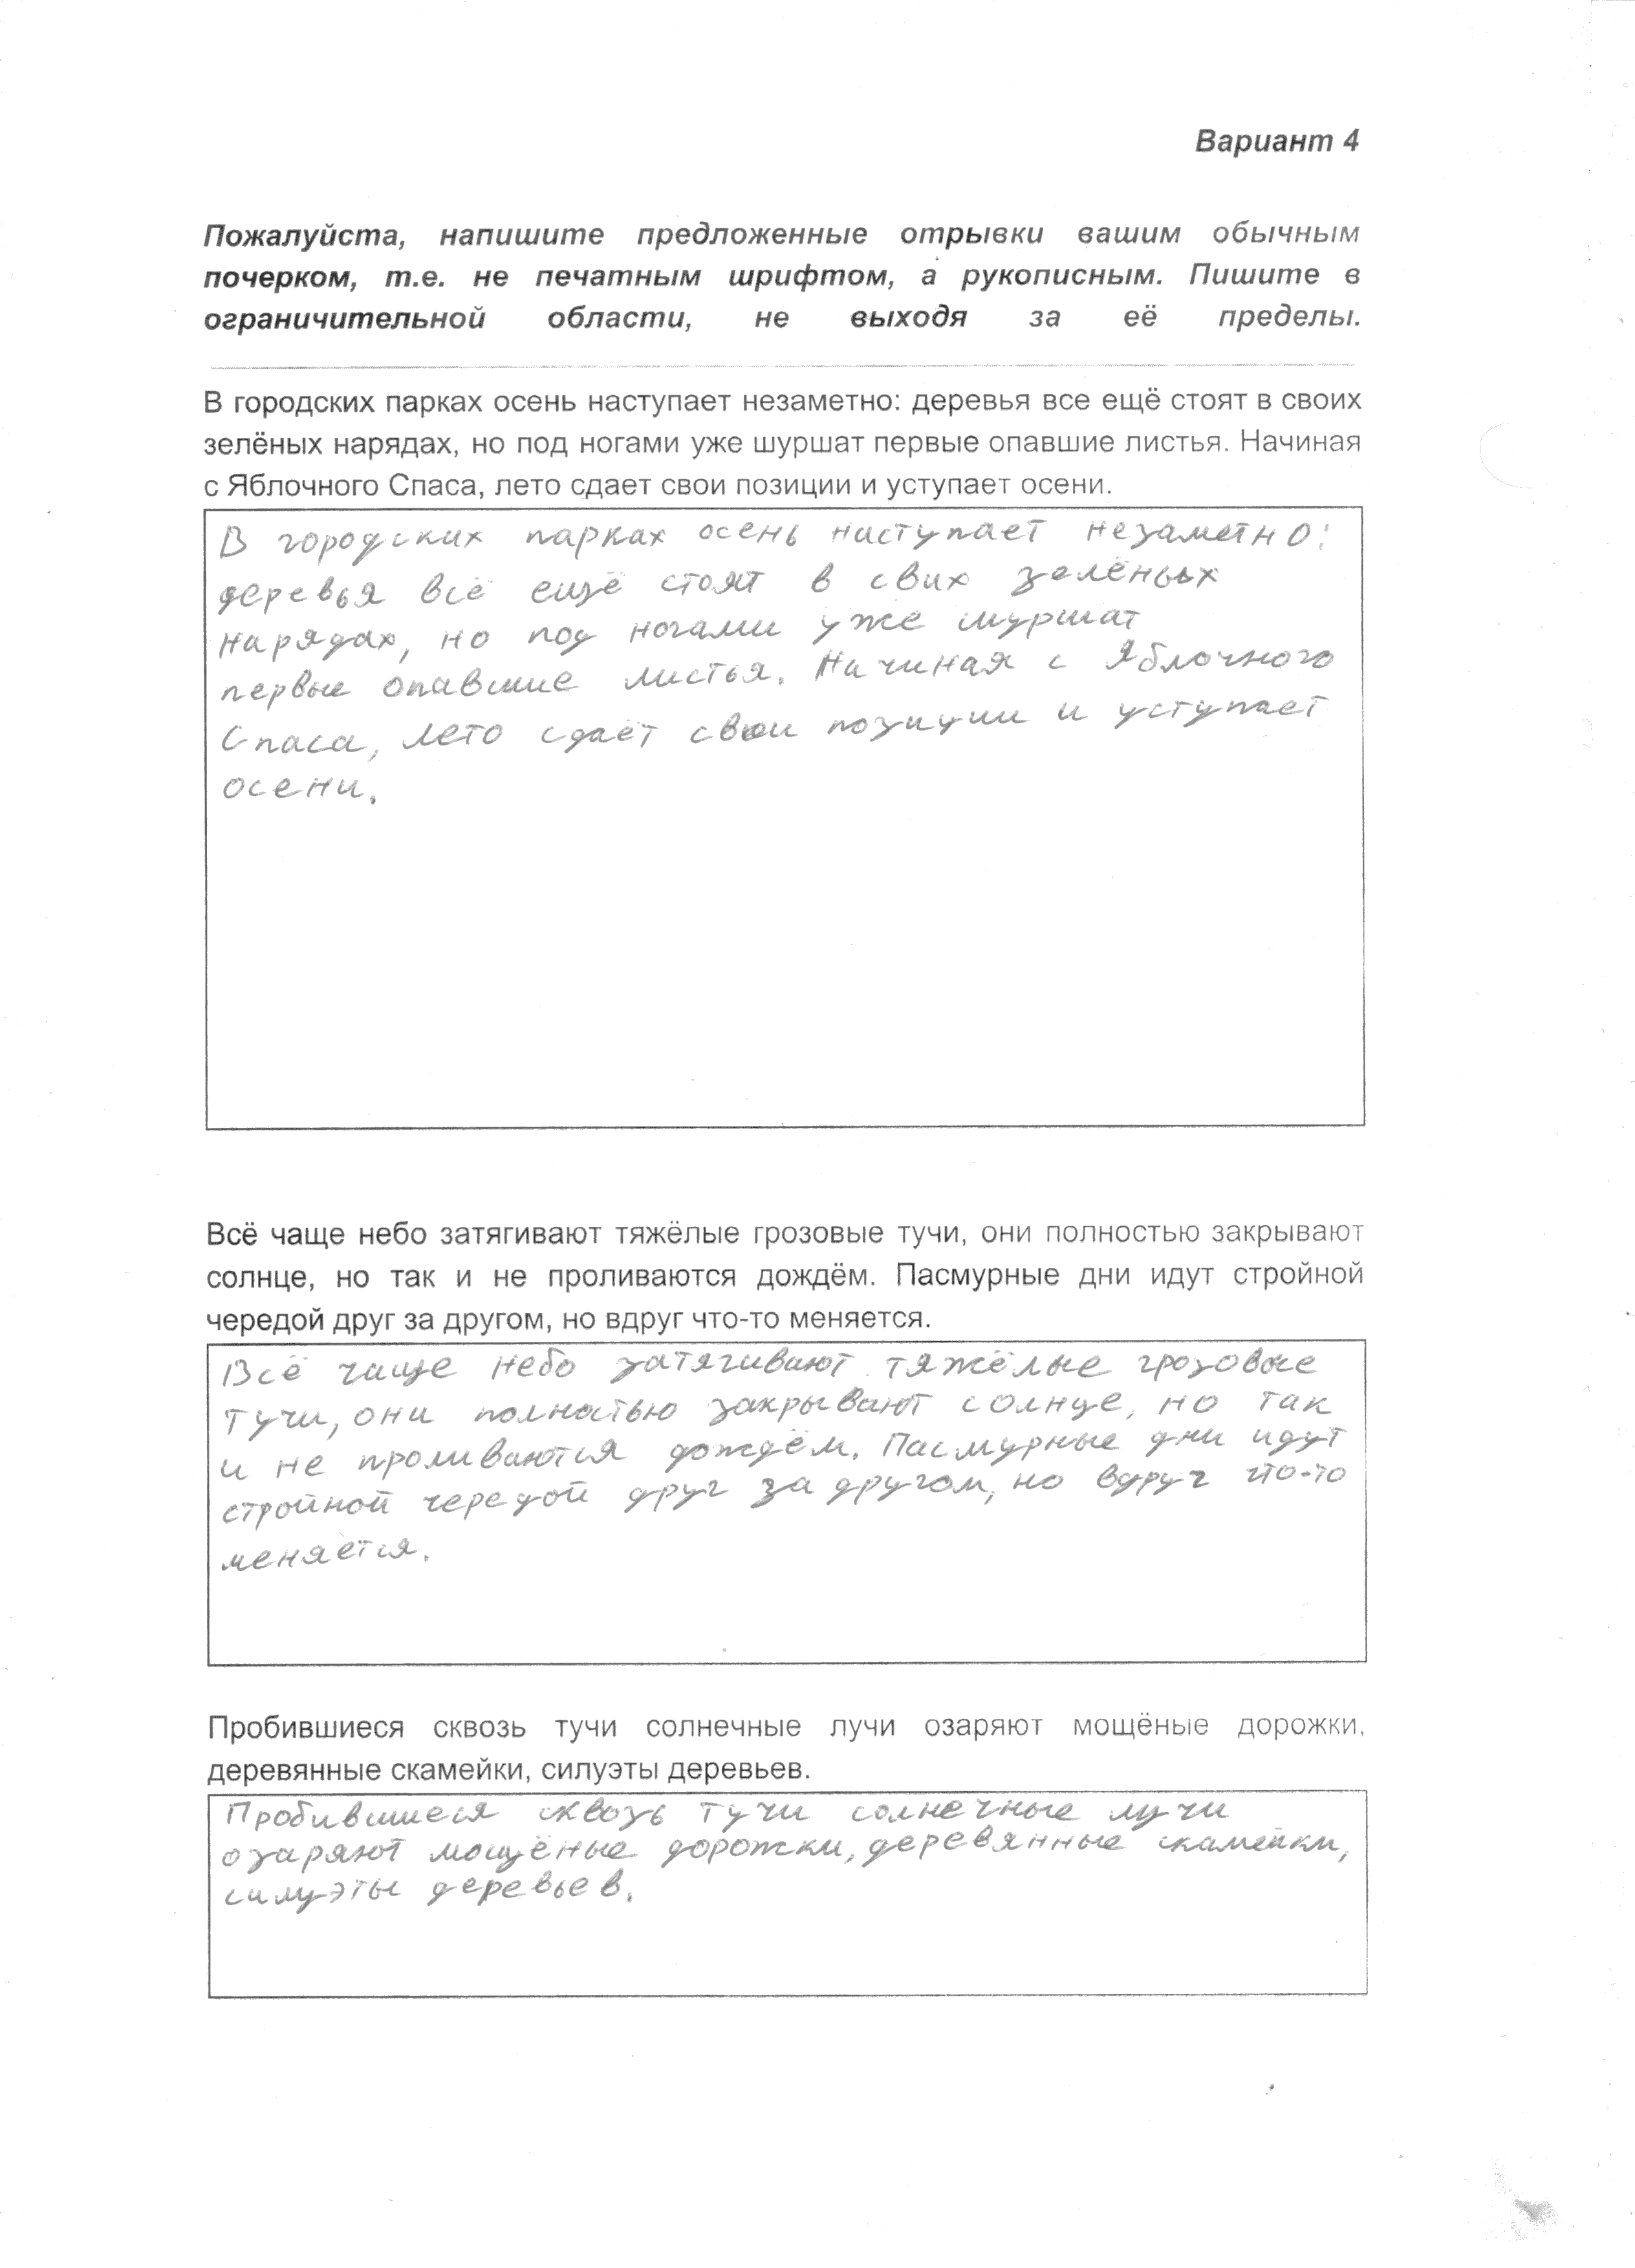 Вариант 4
Пожалуйста, напишите предложенные отрывки вашим обычным
почерком, т.е. не печатным шрифтом, а рукописным. Пишите в
ограничительной области, не выходя за её пределы.
В городских парках осень наступает незаметно: деревья все ещё стоят в своих
зелёных нарядах, но под ногами уже шуршат первые опавшие листья. Начиная
с Яблочного Спаса, лето сдает свои позиции и уступает осени.
В городских парках осень наступает незаметно:
деревья всё ещё стоят в свих зелёных
нарядах, но под ногами уже шуршат
первые опавшие листья. Начиная с Яблочного
Спаса, лето сдаёт свои позиции и уступает
осени.
Всё чаще небо затягивают тяжёлые грозовые тучи, они полностью закрывают
солнце, но так и не проливаются дождём. Пасмурные дни идут стройной
чередой друг за другом, но вдруг что-то меняется.
Всё чаще небо затягивают тяжёлые грозовые
тучи, они полностью закрывают солнце, но так
и не проливаются дождём. Пасмурные дни идут
стройной чередой друг за другом, но вдруг что-то
меняется.
Пробившиеся сквозь тучи солнечные лучи озаряют мощёные дорожки,
деревянные скамейки, силуэты деревьев.
Пробившиеся сквозь тучи солнечные лучи
озаряют мощёные дорожки, деревянные скамейки,
силуэты деревьев.